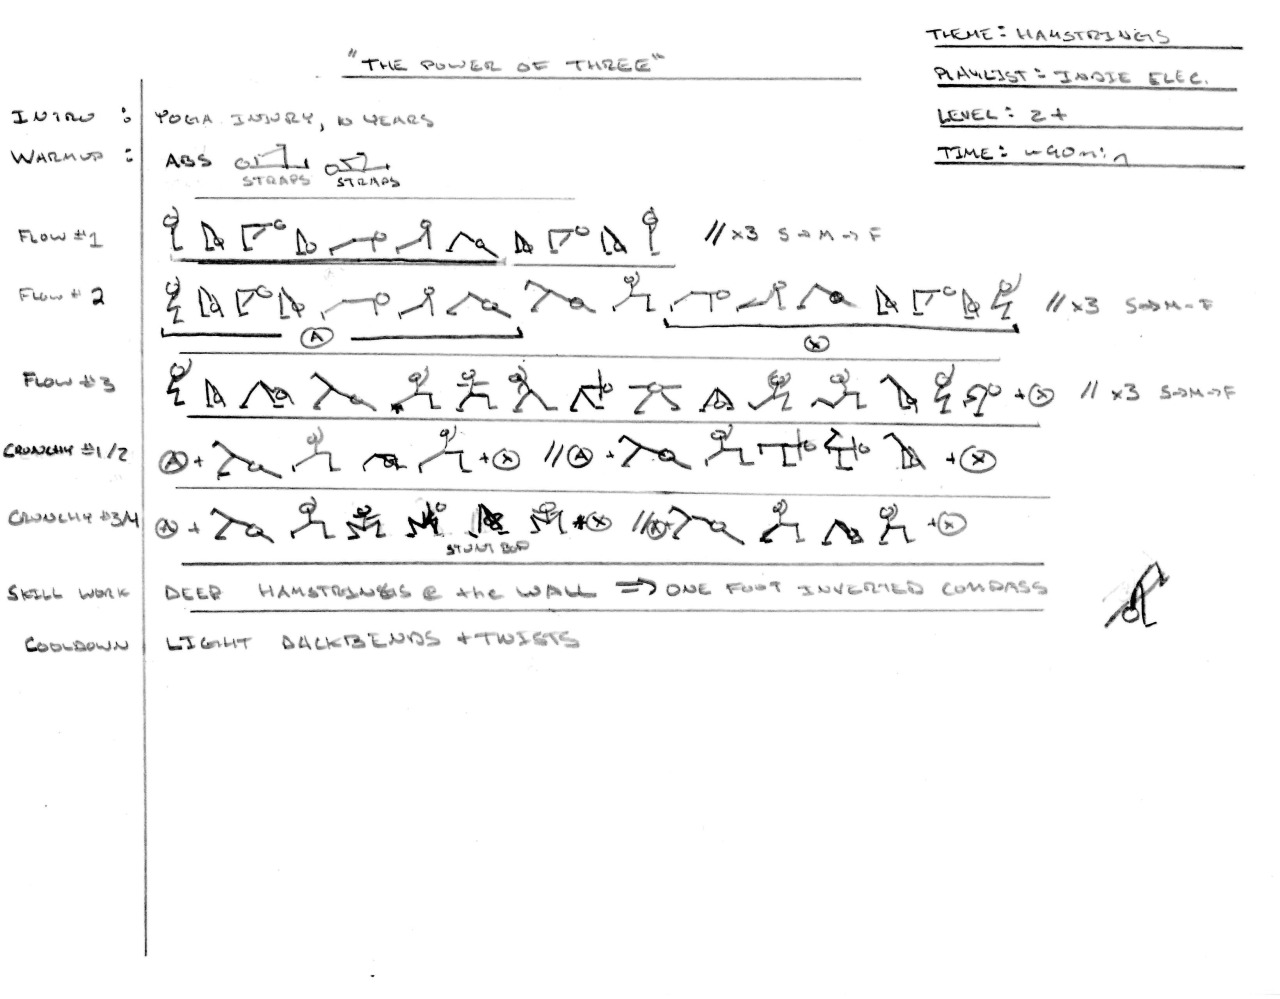 THEME: HAMSTRINGS
"THE POWER OF THREE"
PLAYLIST: INDIE ELEC.
LEVEL: 2+
INTRO : YOGA INJURY, 10 YEARS
TIME: ~90min
WARMUP : ABS
STRAPS STRAPS
FLOW #1 // x3 S→M→F
FLOW # 2 // x3 S→M→F
A X
FLOW #3 + X // x3 S→M→F
CRUNCHY #1/2 A + + X // A + + X
CRUNCHY #3/4 A + + X // + + X
SKILL WORK DEEP HAMSTRINGS @ the WALL => ONE FOOT INVERTED COMPASS
COOLDOWN LIGHT BACKBENDS + TWISTS